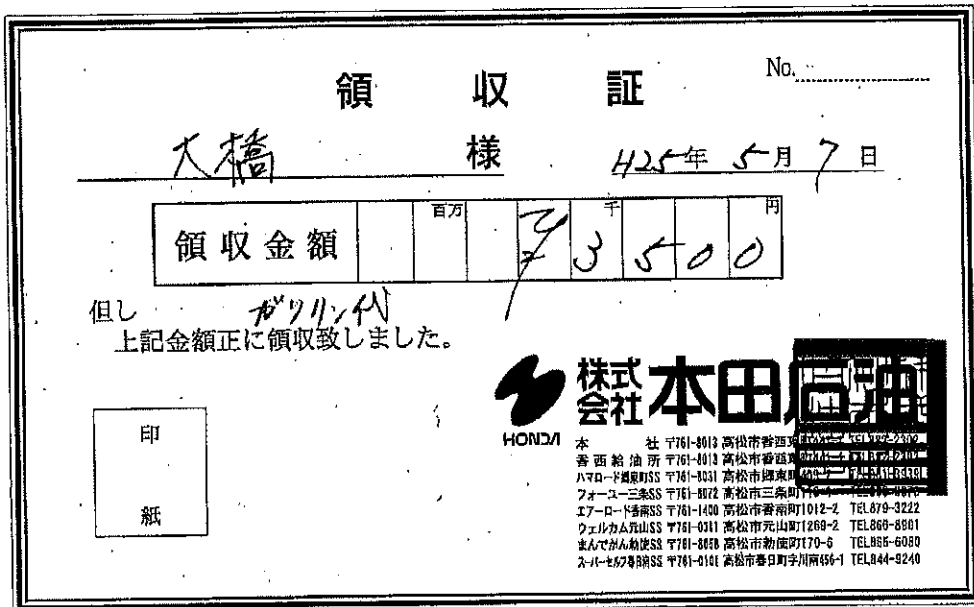 領収証
No.
大橋 様
H25年 5月 7日
領収金額 百万 千 円 ¥3500
但し ガソリン代
上記金額正に領収致しました。
印
紙
株式会社 本田石油
HONDA
本社 〒761-8013 高松市香西
香西給油所 〒761-8013 高松市香西
ハマロード郷東町SS 〒761-8031 高松市郷東町
フォーユー三条SS 〒761-8072 高松市三条町
エアーロード香南SS 〒761-1400 高松市香南町1012-2 TEL879-3222
ウェルカム元山SS 〒761-0311 高松市元山町1269-2 TEL866-8901
まんでがん勅使SS 〒761-8058 高松市勅使町170-6 TEL865-6080
スーパーセルフ春日南SS 〒761-0101 高松市春日町字川南456-1 TEL844-9240